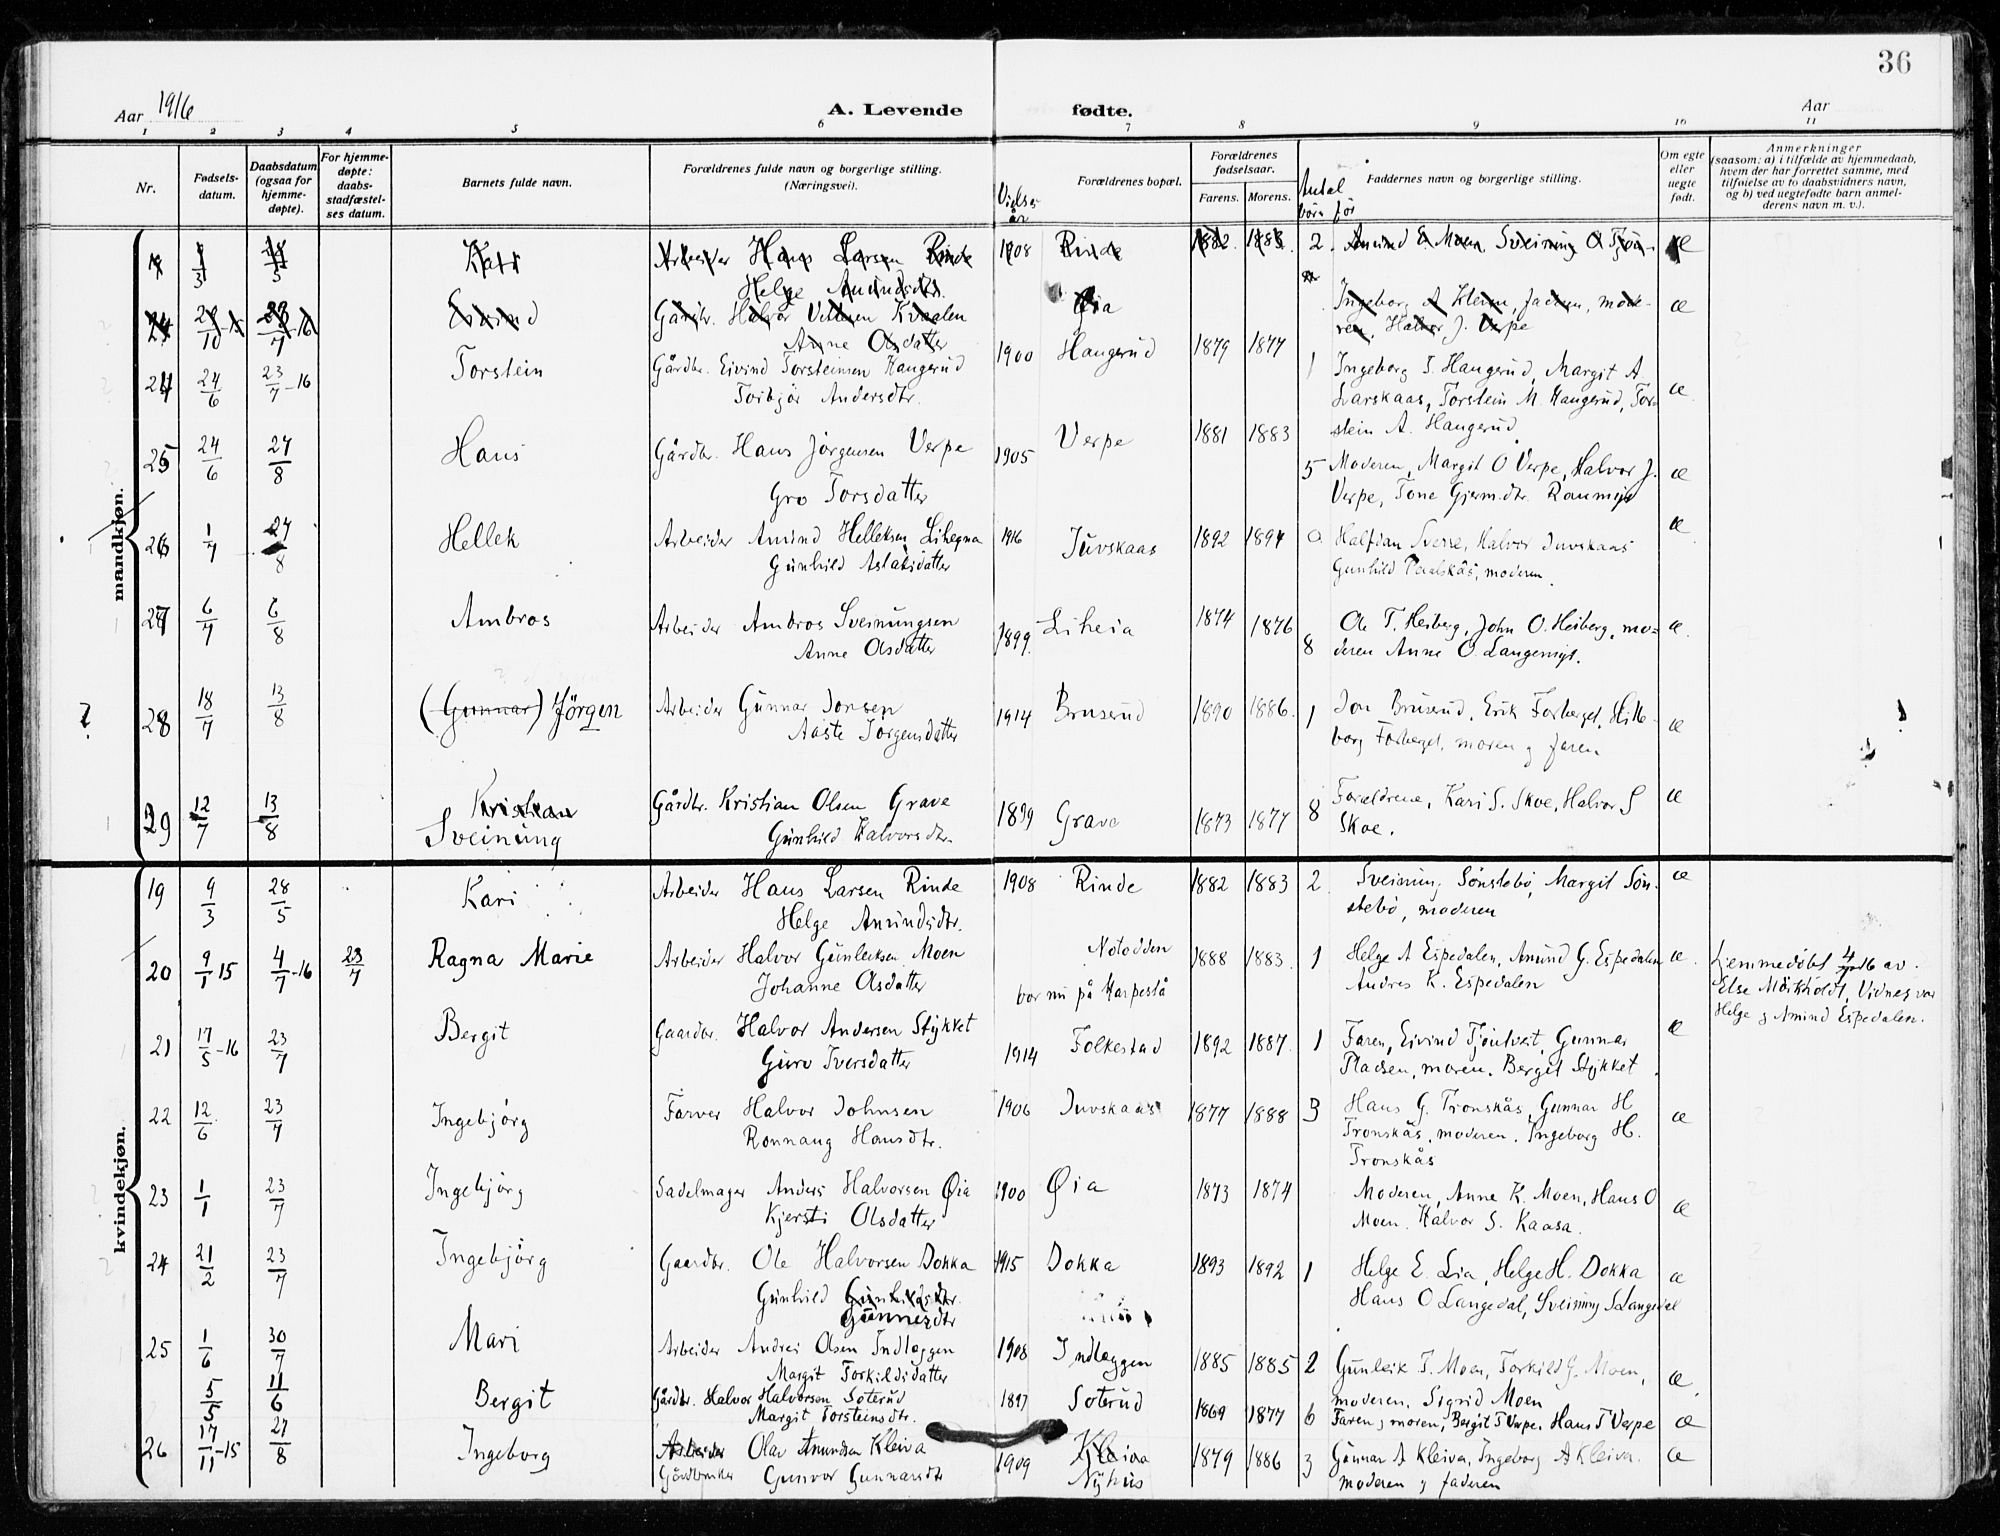 36
Aar 1916
A. Levende fødte.
Aar
1 2 3 4 5 6 7 8 9 10 11
Nr.
Fødsels-
datum.
Daabsdatum
(ogsaa for
hjemme-
døpte).
For hjemme-
døpte:
daabs-
stadfæstel-
ses datum.
Barnets fulde navn.
Forældrenes fulde navn og borgerlige stilling.
(Næringsvei).
Vielses
år
Forældrenes bopæl.
Forældrenes
fødselsaar.
Farens. Morens.
Antal
børn før
Faddernes navn og borgerlige stilling.
Om egte
eller
uegte
født.
Anmerkninger
(saasom: a) i tilfælde av hjemmedaab,
hvem der har forrettet samme, med
tilføielse av to daabsvidners navn,
og b) ved uegtefødte barn anmel-
derens navn m. v.).
mandkjøn.
Kari Arbeider Hans Larsen Rinde 1908 Rinde 1882. 1883. 2. Anund E. Moen, Sveinung O
Helge Anundsdtr.
Gårdbr. Halvor Kvaalen Øia Ingeborg A Kleiva, faderen, mode-
Anne Olsdatter ren, Halvor J. Verpe æ
24 24/6 23/7-16 Torstein Gårdbr. Eivind Torsteinsen Haugerud 1900 Haugerud 1879 1877 1 Ingeborg T. Haugerud, Margit A
Torbjør Andersdtr. Torstein M. Haugerud, Tor- æ
stein A. Haugerud
25 24/6 27/8 Hans Gårdbr. Hans Jørgensen Verpe 1905 Verpe 1881 1883 5 Moderen, Margit O Verpe, Halvor J. æ
Gro Torsdatter Verpe, Tone Gjerm.dtr.
26 1/7 27/8 Hellek Arbeider Amund Helleksen Lihegna 1916 Juvskaas 1892 1894 0 Halfdan Sverre, Halvor Juvskaas æ
Gunhild Aslaksdatter Gunhild moderen.
27 6/7 6/8 Ambros Arbeider Ambros Sveinungsen 1899. Liheia 1874 1876 8 Ole T. Heiberg, John O. Heiberg, mo= æ.
Anne Olsdatter deren Anne O. Langemyr.
? 28 18/7 13/8 (Gunnar) Jörgen Arbeider Gunnar Jonsen 1914 Bruserud 1890 1886. 1 Jon Bruserud, Erik Forberget, Hille- æ
Aaste Jorgensdatter borg Forberget, moren g faren
29 12/7 13/8 Kristian Gårdbr. Kristian Olsen Grave 1899 Grave 1873 1877 8 Forældrene, Kari S. Skoe, Halvor S æ
Sveinung Gunhild Halvorsdtr. Skoe.
kvindekjøn.
19 9/3 28/5 Kari Arbeider Hans Larsen Rinde 1908 Rinde 1882 1883 2 Sveinung Sønstebø, Margit Søn- æ
Helge Anundsdtr. stebø, moderen
20 9/1 15 4/7-16 23/7 Ragna Marie Arbeider Halvor Gunleiksen Moen Notodden 1888 1883. 1 Helge A Espedalen, Anund G. Espedalen æ. Hjemmedøbt 4/7-16 av
Johanne Olsdatter bor nu på Harpestå Andres K. Espedalen Else Vidner var
Helge g Amund Espedalen.
21 17/5-16 23/7 Bergit Gaardbr. Halvor Andersen Stykket 1914 Folkestad 1892 1887. 1 Faren, Eivind Gunnar æ
Guro Iversdatter Pladsen, moren. Bergit Stykket
22 12/6 23/7 Ingebjørg Farver Halvor Johnsen 1906 Juvskaas 1877 1888 3 Hans G. Tronskås, Gunnar H æ
Ronnaug Hansdtr. Tronskås, moderen. Ingeborg H.
Tronskås
23 1/1 23/7 Ingebjørg Sadelmager Anders Halvorsen Øia 1900 Øia 1873 1874 Moderen, Anne K. Moen, Hans O æ
Kjersti Olsdatter Moen. Halvor S. Kaasa.
24 21/2 23/7 Ingebjørg Gaardbr. Ole Halvorsen Dokka 1915 Dokka 1893 1892 1 Helge E. Lia, Helge H. Dokka æ
Gunhild Gunnersdtr Hans O Langedal, Sveinung S Langedal
25 1/6 30/7 Mari Arbeider Andrei Olsen Indlæggen 1908 Indlæggen 1885 1885 2 Gunleik T. Moen, Torkild G. Moen, æ
Margit Torkildsdatter moderen, Sigrid Moen
5/5 11/6 Bergit Gårdbr. Halvor Halvorsen Soterud 1897 Soterud 1869 1877 6 Faren g moren, Bergit T Verpe. Hans T Verpe æ
Margit Torsteinsdtr.
26 17/11-15 27/8 Ingeborg Arbeider Olav Anundsen Kleiva 1909 Kleiva 1879 1886 3 Gunnar A Kleiva, Ingeborg A Kleiva. æ
Gårdbruker Gunvor Gunnarsdtr Nyhus moderen g faderen